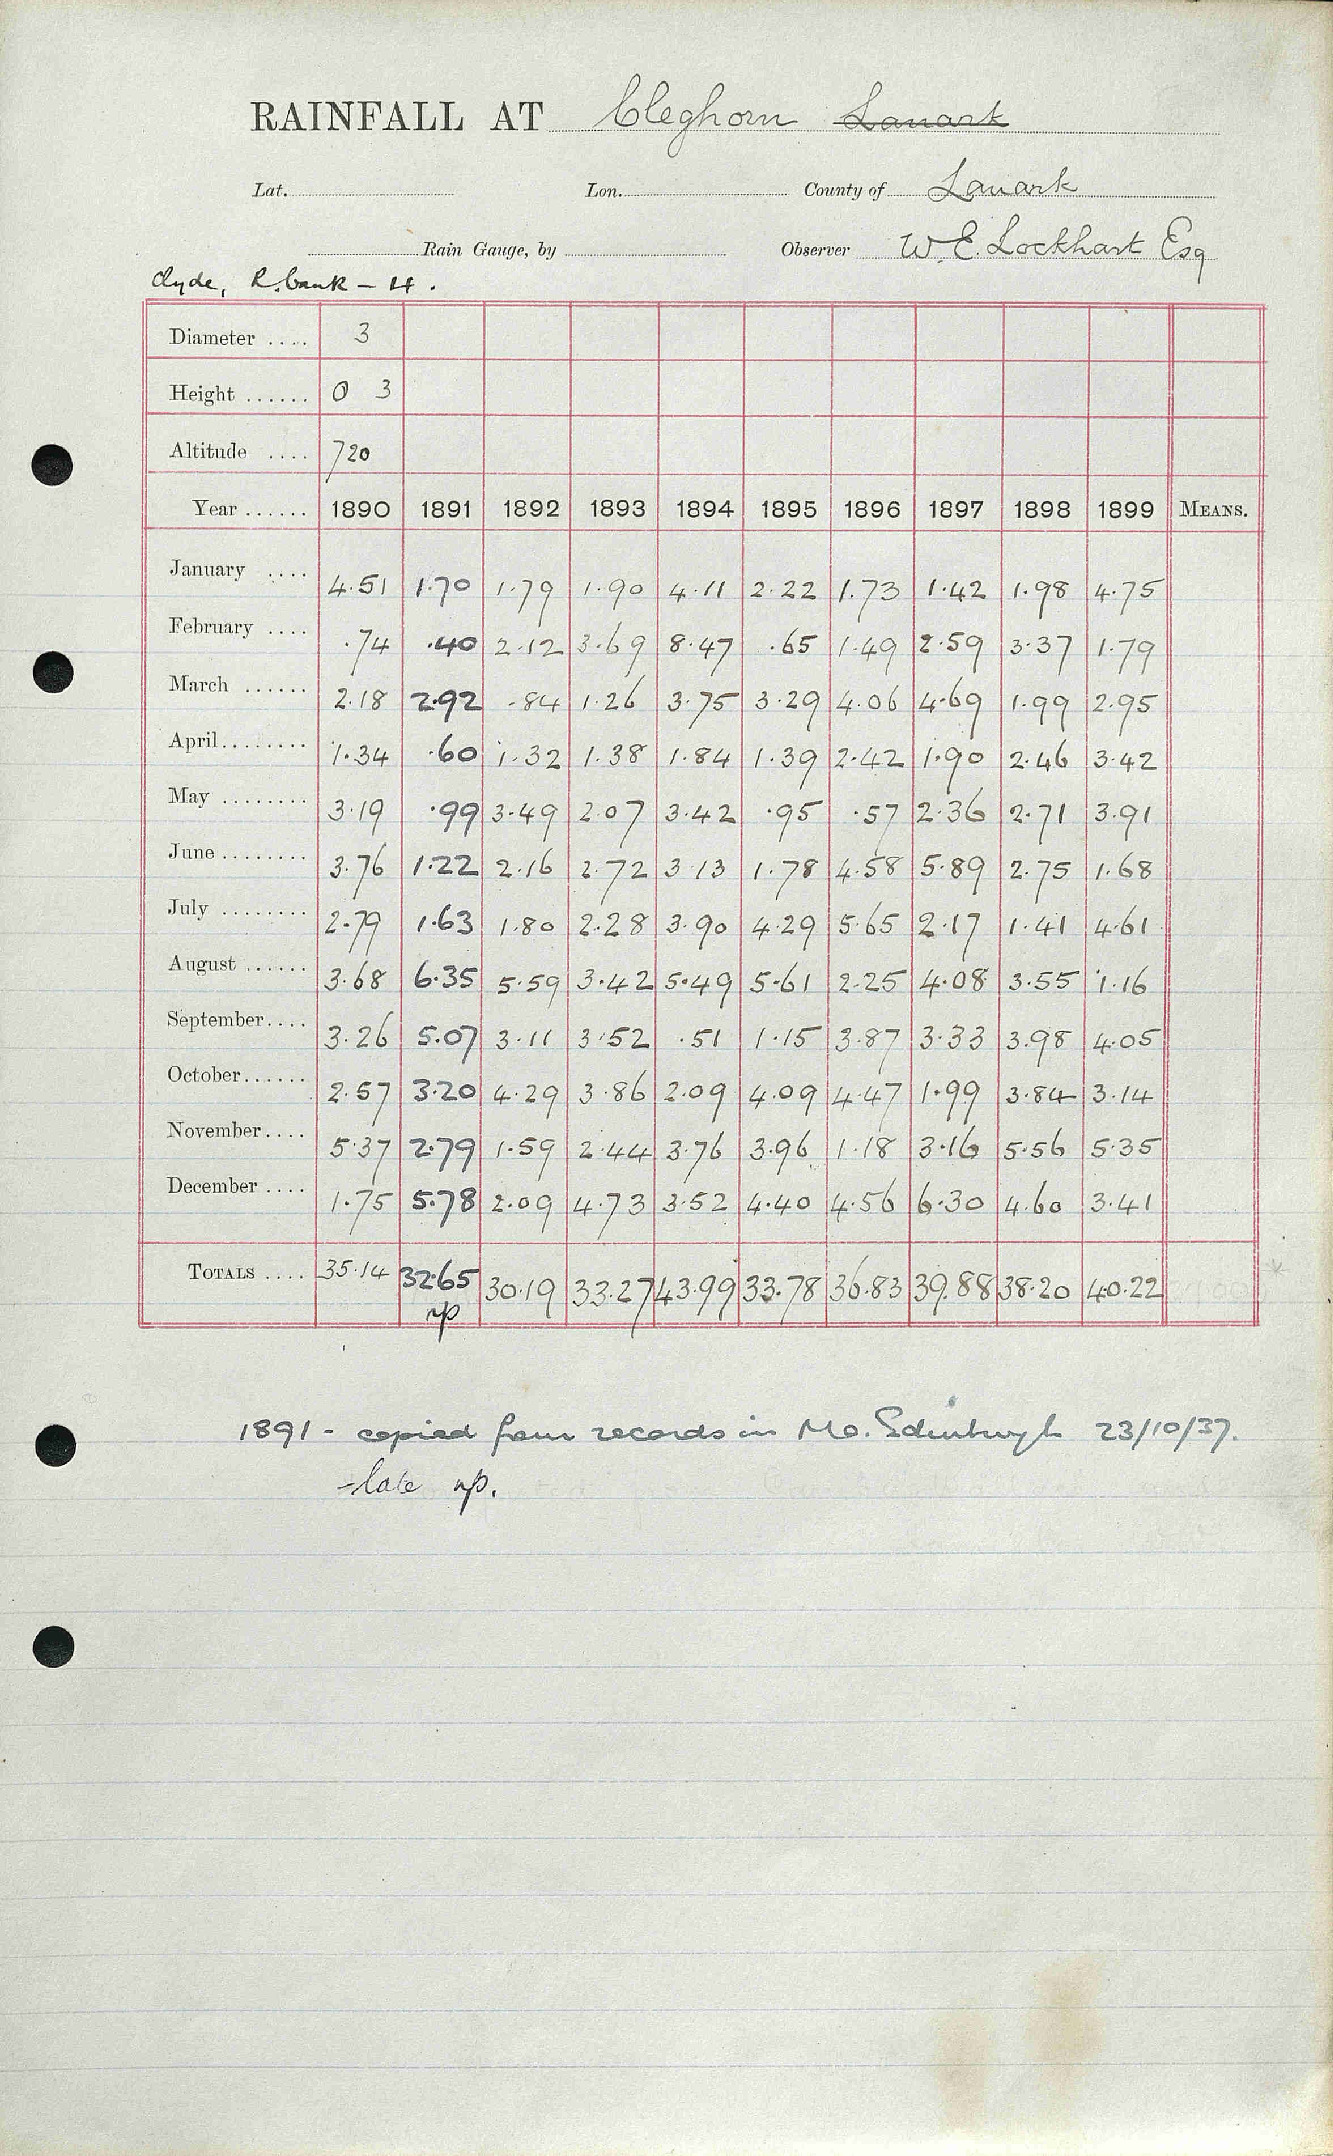 RAINFALL AT Cleghorn Lanark
Lat. Lon. County of Lanark
Rain Gauge, by Observer W. E. Lockhart Esq
Clyde, R. bank - 4.
Diameter .... 3
Height ...... 0 3
Altitude .... 720
Year ...... 1890 1891 1892 1893 1894 1895 1896 1897 1898 1899 MEANS.
January .... 4.51 1.70 1.79 1.90 4.11 2.22 1.73 1.42 1.98 4.75
February .... .74 .40 2.12 3.69 8.47 .65 1.49 2.59 3.37 1.79
March ...... 2.18 2.92 .84 1.26 3.75 3.29 4.06 4.69 1.99 2.95
April........ 1.34 .60 1.32 1.38 1.84 1.39 2.42 1.90 2.46 3.42
May ........ 3.19 .99 3.49 2.07 3.42 .95 .57 2.36 2.71 3.91
June ........ 3.76 1.22 2.16 2.72 3.13 1.78 4.58 5.89 2.75 1.68
July ........ 2.79 1.63 1.80 2.28 3.90 4.29 5.65 2.17 1.41 4.61
August ...... 3.68 6.35 5.59 3.42 5.49 5.61 2.25 4.08 3.55 1.16
September.... 3.26 5.07 3.11 3.52 .51 1.15 3.87 3.33 3.98 4.05
October...... 2.57 3.20 4.29 3.86 2.09 4.09 4.47 1.99 3.84 3.14
November.... 5.37 2.79 1.59 2.44 3.76 3.96 1.18 3.16 5.56 5.35
December .... 1.75 5.78 2.09 4.73 3.52 4.40 4.56 6.30 4.60 3.41
TOTALS .... 35.14 32.65 30.19 33.27 43.99 33.78 36.83 39.88 38.20 40.22
np
1891 - copied from records in Mo. Edinburgh 23/10/37.
- late np.